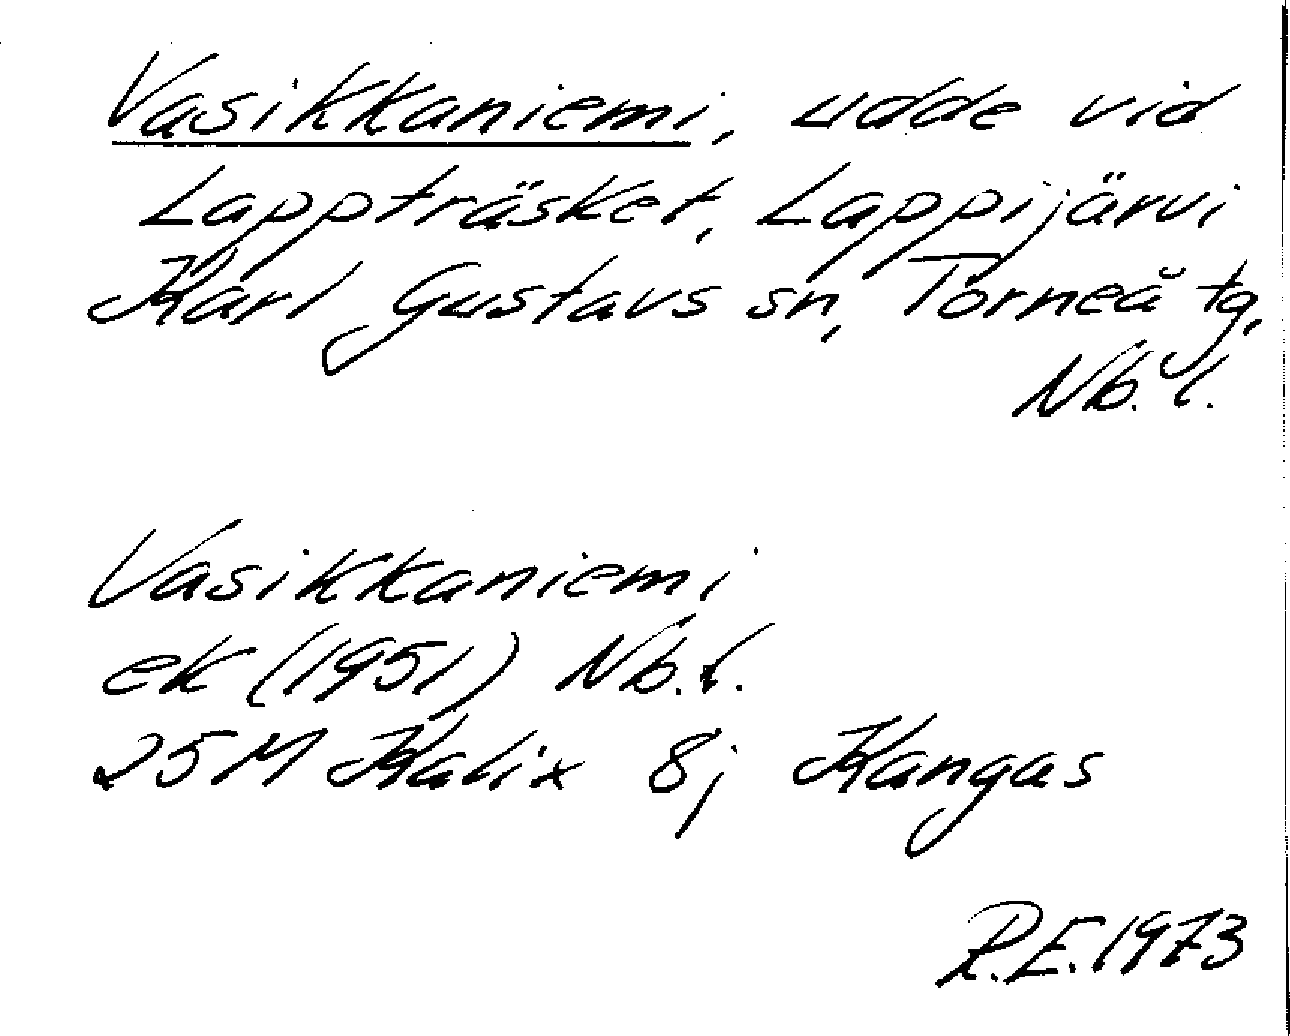 Vasikkaniemi, udde vid
Lappträsket, Lappijärvi
Karl Gustavs sn, Torneå tg,
Nb. l.
Vasikkaniemi
ek (1951) Nb. l.
25M Kalix 8j Kangas
R.E. 1973